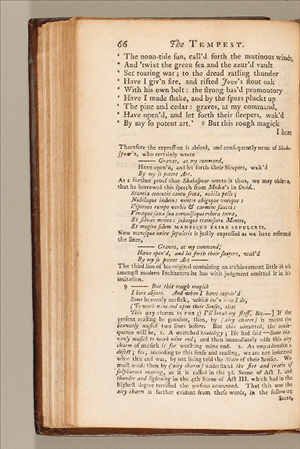 66 The TEMPEST.
' The noon-tide sun, call'd forth the mutinous winds,
' And 'twixt the green sea and the azur'd vault
' Set roaring war; to the dread ratling thunder
' Have I giv'n fire, and rifted Jove's stout oak
' With his own bolt: the strong-bas'd promontory
' Have I made shake, and by the spurs pluckt up
' The pine and cedar: graves, at my command,
' Have open'd, and let forth their sleepers, wak'd
' By my so potent art.' 9 But this rough magick
I here
Therefore the expression is absurd, and consequently none of Shake-
spear's, who certainly wrote
—— Graves, at my command,
Have open'd, and let forth their sleepers, wak'd
By my so potent Art.
As a further proof that Shakespear wrote it thus, we may observe,
that he borrowed this speech from Medea's in Ovid.
Stantia concutio cantu freta, nubila pello;
Nubilaque induco: ventos abigoque vocoque:
Vipereas rumpo verbis & carmine fauces:
Vivaque saxa sua convulsaque robora terra,
Et silvas moveo: jubeoque tremiscere Montes,
Et mugire solum MANESQUE EXIRE SEPULCRIS.
Now manesque exire sepulcris is justly expressed as we have restored
the lines,
—— Graves, at my command;
Have open'd, and let forth their sleepers, wak'd
By my so potent Art ——
The third line of his original containing an atchievement little
amongst modern Inchanters he has with judgment omitted it in his
imitation.
9 —— But this rough magick
I here abjure. And when I have requir'd
Some heavenly musick, which ev'n now I do,
(To work mine end upon their Senses, that
This airy charm is for;) I'll break my staff, &c.—] If the
present reading be genuine, then, by (airy charm) is meant the
heavenly musick two lines before. But this admitted, the
quence will be, 1. A wretched tautology; He had said—Some hea-
venly musick to work mine end; and then immediately adds this airy
charm of musick is for working mine end. 2. An unpardonable
defect; for, according to this sense and reading, we are not informed
what this end was, by not being told the State of their Senses. We
must needs then by (airy charm) understand the fire and cracks of
sulphurous roaring, as it is called in the 3d. Scene of Act I. and
thunder and lightning in the 4th Scene of Act III. which had in the
highest degree terrified the persons concerned. That this was the
airy charm is further evident from these words, in the following
Scene,